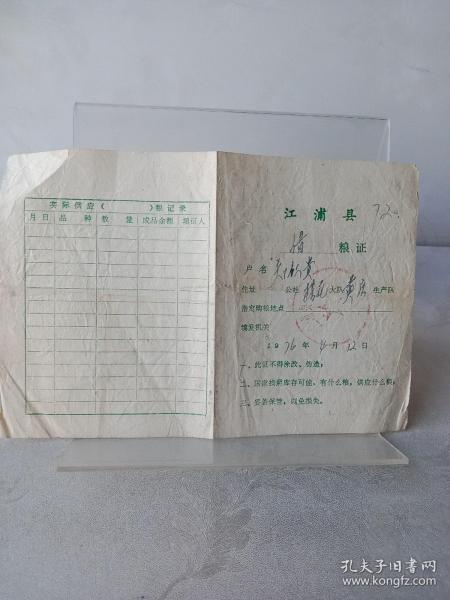 实际供应（　　　）粮记录
月日 品种 数量 成品金额 填证人
江浦县
72
粮证
户名
住址 公社 大队 生产队
指定购粮地点
填发机关
1976年 月12日
一、此证不得涂改、伪造；
二、国家按照库存可能，有什么粮，供应什么粮；
三、妥善保管，以免损失。
孔夫子旧书网
www.kongfz.com